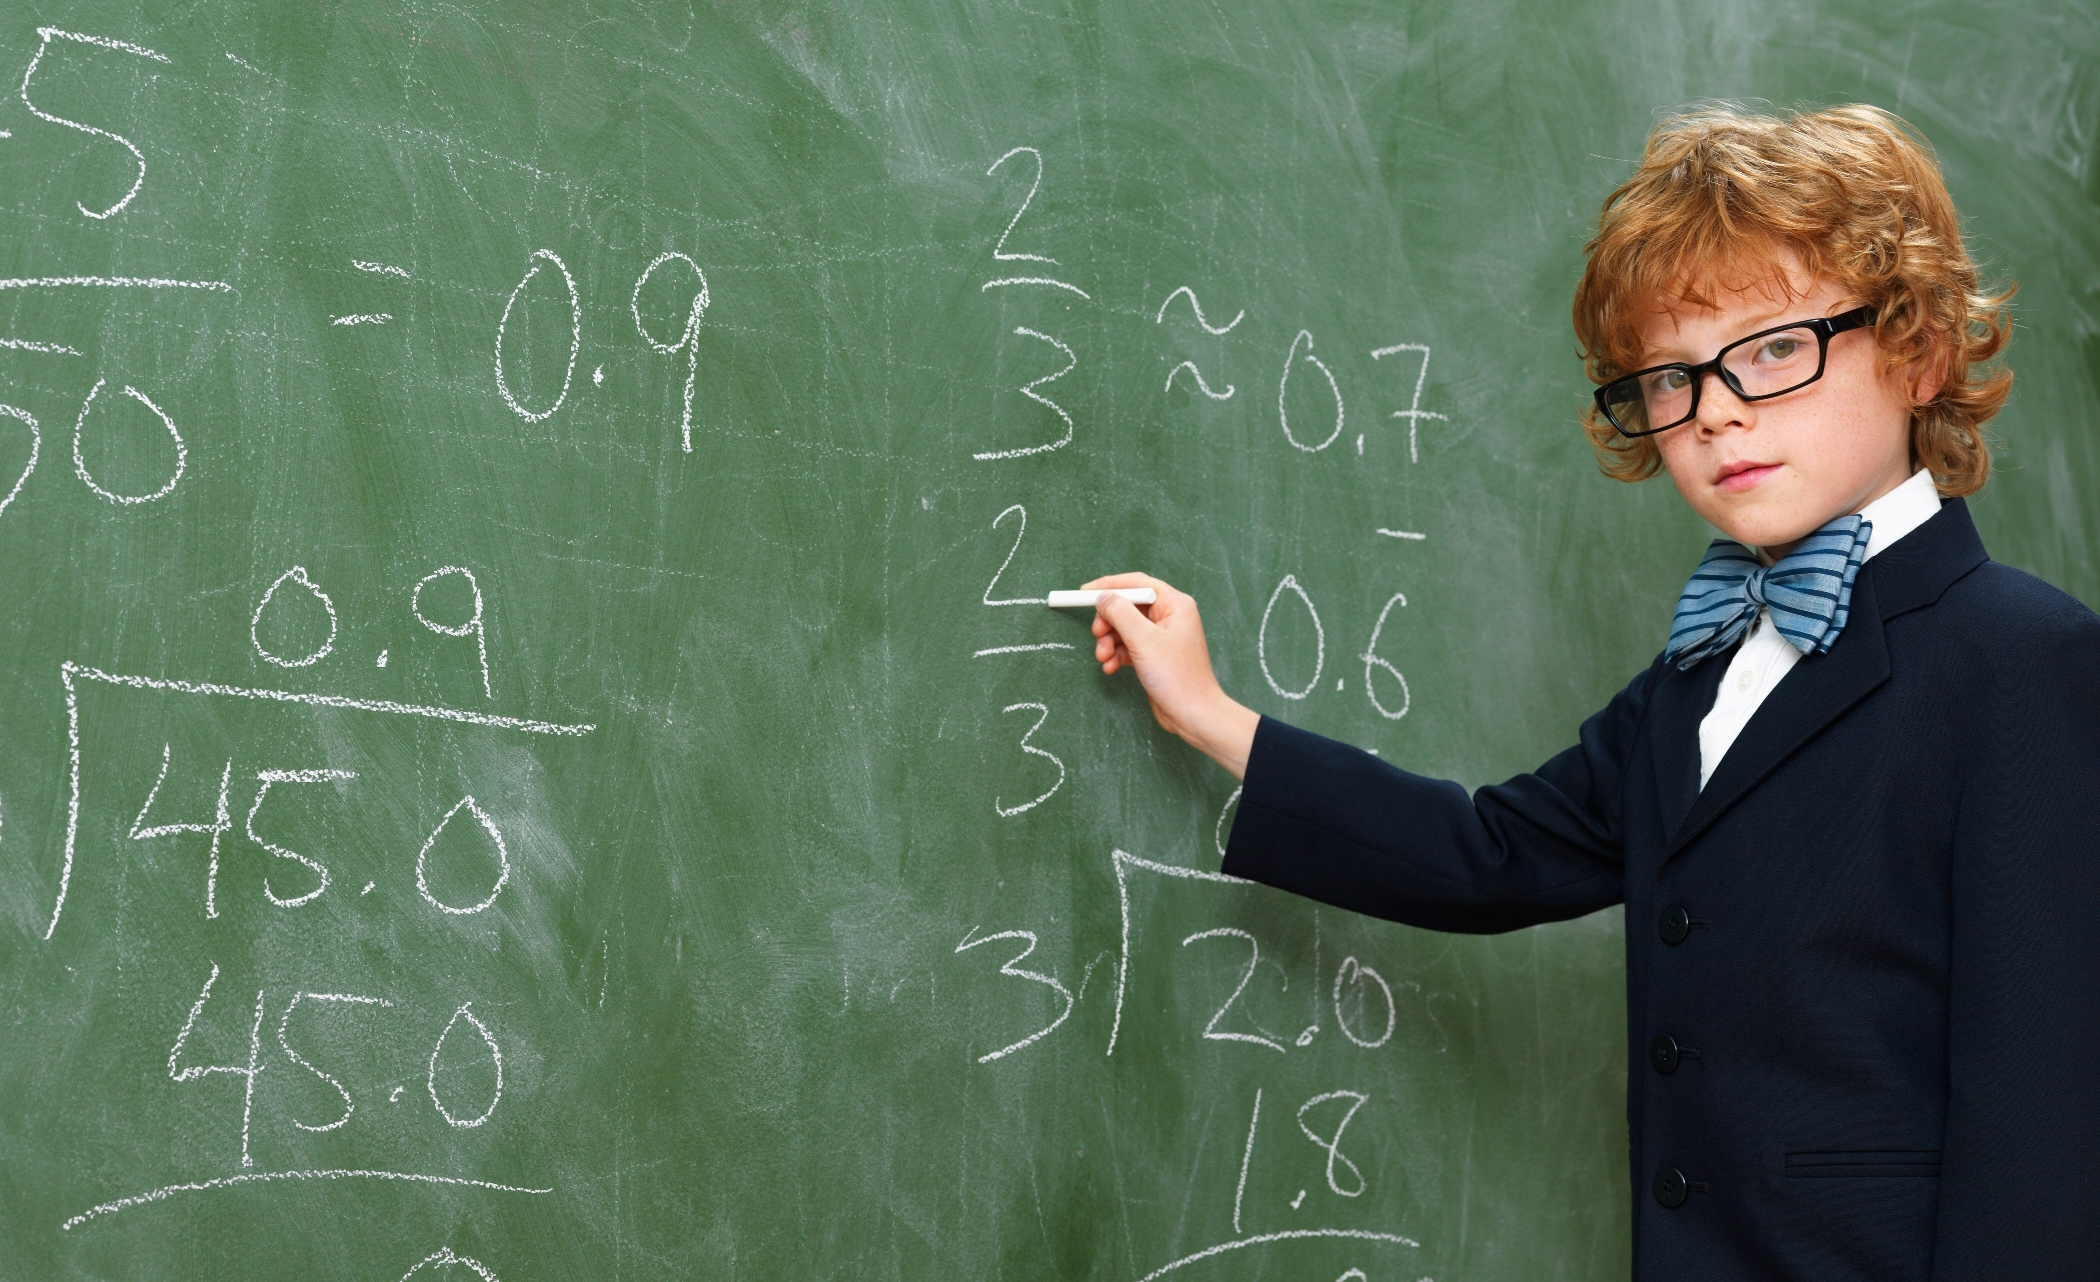 5
= 0.9
50
0.9
45.0
45.0
0
2
3
≈ 0.7
2
3
0.6̅
3 2.0
1.8